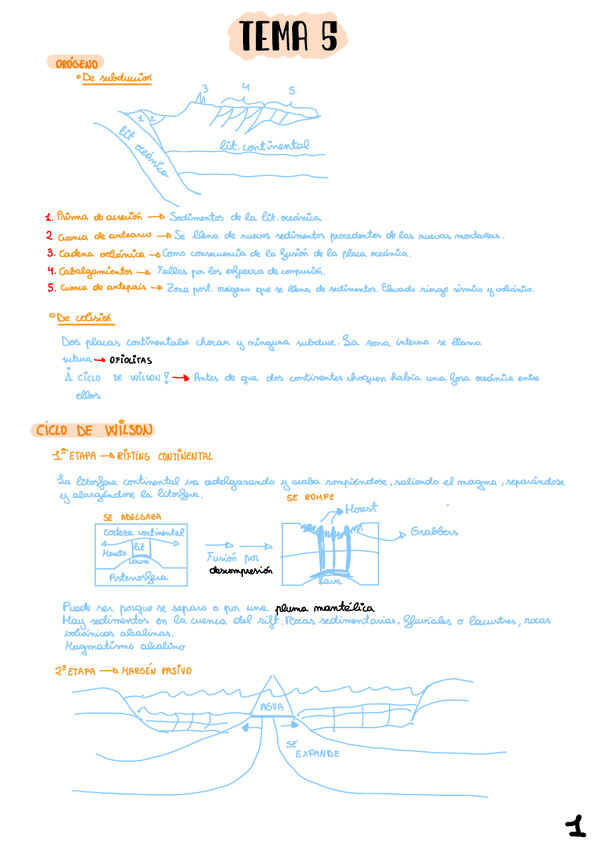 TEMA 5
ORÓGENO
De subducción
3 4 5
1 2
lit oceánica
lit. continental
1. Prisma de acreción → Sedimentos de la lit. oceánica
2 Cuenca de antearco → Se llena de nuevos sedimentos procedentes de las nuevas montañas.
3. Cadena volcánica → Como consecuencia de la fusión de la placa oceánica.
4. Cabalgamientos → Fallas por los esfuerzo de compresión.
5. Cuenca de antepaís → Zona post. orógeno que se llena de sedimentos. Elevado riesgo sísmico y volcánico.
De colisión
Dos placas continentales chocan y ninguna subduce. La zona interna se llama
sutura → OFIOLITAS
Å CICLO DE WILSON! → Antes de que dos continentes choquen había una fosa oceánica entre
ellos
CICLO DE WILSON
1ª ETAPA → RIFTING CONTINENTAL
La litosfera continental va adelgazando y acaba rompiéndose, saliendo el magma, separándose
y alargándose la litosfera.
SE ROMPE
Horst
SE ADELGAZA
Corteza continental
Manto lit
Lava
Astenosfera
Fusión por
descompresión
Grabbers
Lava
Puede ser porque se separa o por una pluma mantélica
Hay sedimentos en la cuenca del rift. Rocas sedimentarias, fluviales o lacustres, rocas
volcánicas alcalinas.
Magmatismo alcalino
2ª ETAPA → MARGEN PASIVO
AGUA
SE
EXPANDE
1